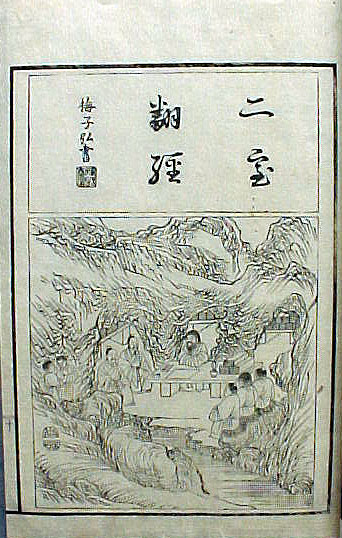 二室
翻經
梅子弘書